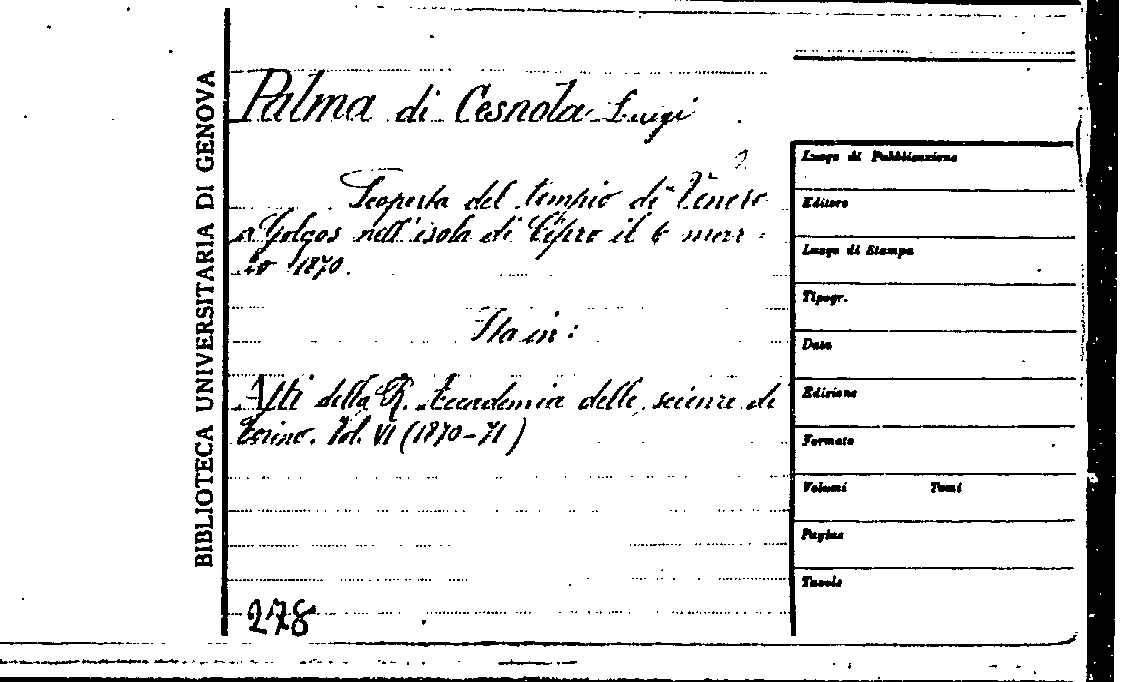 BIBLIOTECA UNIVERSITARIA DI GENOVA
Palma di Cesnola Luigi
Scoperta del tempio di Venere
a Golgos nell'isola di Cipro il 6 mar=
zo 1870.
Sta in:
Atti della R. Accademia delle scienze di
Torino. Vol. VI (1870-71)
278
Luogo di Pubblicazione
Editore
Luogo di Stampa
Tipogr.
Data
Edizione
Formato
Volumi Tomi
Pagine
Tavole